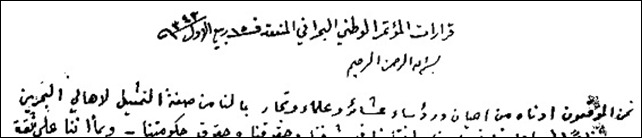 قرارات المؤتمر الوطني البحراني المنعقد في ١٥ ربيع الاول ١٣٤٢
بسم الله الرحمن الرحيم
نحن الموقعون ادناه من اعيان ورؤساء عشائر وعلماء وتجار بما لنا من صفة التمثيل لاهالي البحرين
وحقوقنا وحقوق حكومتنا - وبما اننا على ثقة